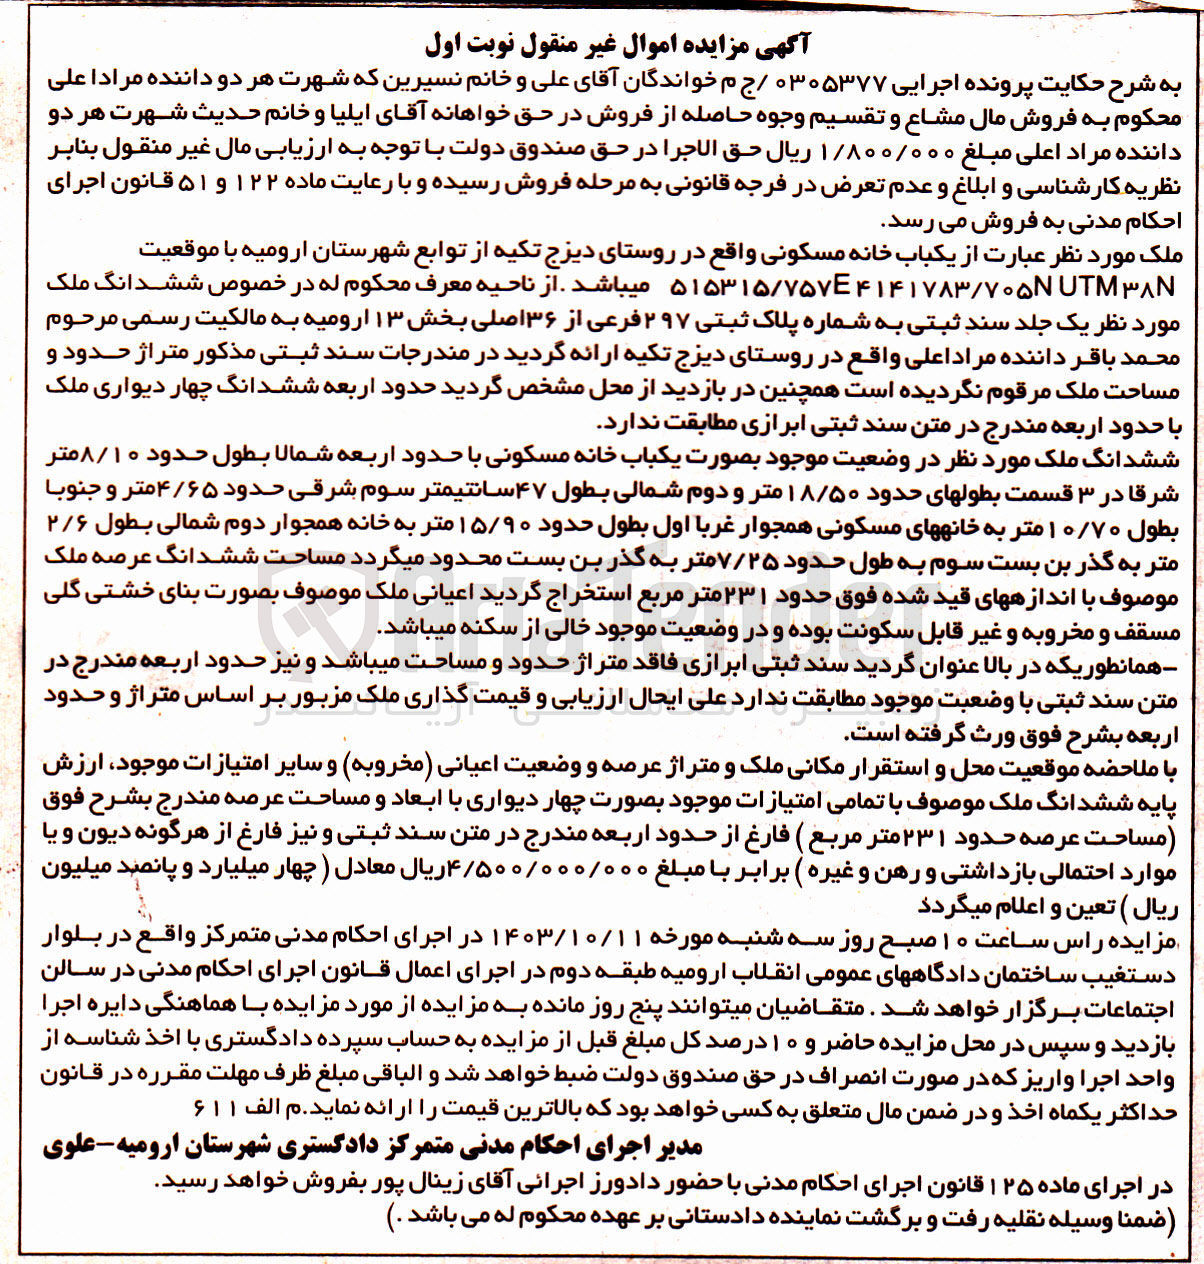 آگهی مزایده اموال غیر منقول نوبت اول
به شرح حکایت پرونده اجرایی ۰۳۰۵۳۷۷ /ج م خواندگان آقای علی و خانم نسیرین که شهرت هر دو داننده مرادا علی
محکوم به فروش مال مشاع و تقسیم وجوه حاصله از فروش در حق خواهانه آقای ایلیا و خانم حدیث شهرت هر دو
داننده مراد اعلی مبلغ ۱/۸۰۰/۰۰۰ ریال حق الاجرا در حق صندوق دولت با توجه به ارزیابی مال غیر منقول بنابر
نظریه کارشناسی و ابلاغ و عدم تعرض در فرجه قانونی به مرحله فروش رسیده و با رعایت ماده ۱۲۲ و ۵۱ قانون اجرای
احکام مدنی به فروش می رسد.
ملک مورد نظر عبارت از یکباب خانه مسکونی واقع در روستای دیزج تکیه از توابع شهرستان ارومیه با موقعیت
۵۱۵۳۱۵/۷۵۷E ۴۱۴۱۷۸۳/۷۰۵N UTM ۳۸N میباشد .از ناحیه معرف محکوم له در خصوص ششدانگ ملک
مورد نظر یک جلد سند ثبتی به شماره پلاک ثبتی ۲۹۷فرعی از ۳۶اصلی بخش ۱۳ ارومیه به مالکیت رسمی مرحوم
محمد باقر داننده مراداعلی واقع در روستای دیزج تکیه ارائه گردید در مندرجات سند ثبتی مذکور متراژ حدود و
مساحت ملک مرقوم نگردیده است همچنین در بازدید از محل مشخص گردید حدود اربعه ششدانگ چهار دیواری ملک
با حدود اربعه مندرج در متن سند ثبتی ابرازی مطابقت ندارد.
ششدانگ ملک مورد نظر در وضعیت موجود بصورت یکباب خانه مسکونی با حدود اربعه شمالا بطول حدود ۸/۱۰متر
شرقا در ۳ قسمت بطولهای حدود ۱۸/۵۰ متر و دوم شمالی بطول ۴۷سانتیمتر سوم شرقی حدود ۴/۶۵متر و جنوبا
بطول ۱۰/۷۰متر به خانههای مسکونی همجوار غربا اول بطول حدود ۱۵/۹۰متر به خانه همجوار دوم شمالی بطول ۲/۶
متر به گذر بن بست سوم به طول حدود ۷/۲۵متر به گذر بن بست محدود میگردد مساحت ششدانگ عرصه ملک
موصوف با اندازههای قید شده فوق حدود ۲۳۱متر مربع استخراج گردید اعیانی ملک موصوف بصورت بنای خشتی گلی
مسقف و مخروبه و غیر قابل سکونت بوده و در وضعیت موجود خالی از سکنه میباشد.
-همانطوریکه در بالا عنوان گردید سند ثبتی ابرازی فاقد متراژ حدود و مساحت میباشد و نیز حدود اربعه مندرج در
متن سند ثبتی با وضعیت موجود مطابقت ندارد علی ایحال ارزیابی و قیمت گذاری ملک مزبور بر اساس متراژ و حدود
اربعه بشرح فوق ورث گرفته است.
با ملاحضه موقعیت محل و استقرار مکانی ملک و متراژ عرصه و وضعیت اعیانی (مخروبه) و سایر امتیازات موجود، ارزش
پایه ششدانگ ملک موصوف با تمامی امتیازات موجود بصورت چهار دیواری با ابعاد و مساحت عرصه مندرج بشرح فوق
(مساحت عرصه حدود ۲۳۱متر مربع ) فارغ از حدود اربعه مندرج در متن سند ثبتی و نیز فارغ از هرگونه دیون و یا
موارد احتمالی بازداشتی و رهن و غیره ) برابر با مبلغ ۴/۵۰۰/۰۰۰/۰۰۰ریال معادل ( چهار میلیارد و پانصد میلیون
ریال ) تعین و اعلام میگردد
مزایده راس ساعت ۱۰صبح روز سه شنبه مورخه ۱۴۰۳/۱۰/۱۱ در اجرای احکام مدنی متمرکز واقع در بلوار
دستغیب ساختمان دادگاههای عمومی انقلاب ارومیه طبقه دوم در اجرای اعمال قانون اجرای احکام مدنی در سالن
اجتماعات برگزار خواهد شد . متقاضیان میتوانند پنج روز مانده به مزایده از مورد مزایده با هماهنگی دایره اجرا
بازدید و سپس در محل مزایده حاضر و ۱۰درصد کل مبلغ قبل از مزایده به حساب سپرده دادگستری با اخذ شناسه از
واحد اجرا واریز که در صورت انصراف در حق صندوق دولت ضبط خواهد شد و الباقی مبلغ ظرف مهلت مقرره در قانون
حداکثر یکماه اخذ و در ضمن مال متعلق به کسی خواهد بود که بالاترین قیمت را ارائه نماید.م الف ۶۱۱
مدیر اجرای احکام مدنی متمرکز دادگستری شهرستان ارومیه-علوی
در اجرای ماده ۱۲۵ قانون اجرای احکام مدنی با حضور دادورز اجرائی آقای زینال پور بفروش خواهد رسید.
(ضمنا وسیله نقلیه رفت و برگشت نماینده دادستانی بر عهده محکوم له می باشد .)
AriaTender